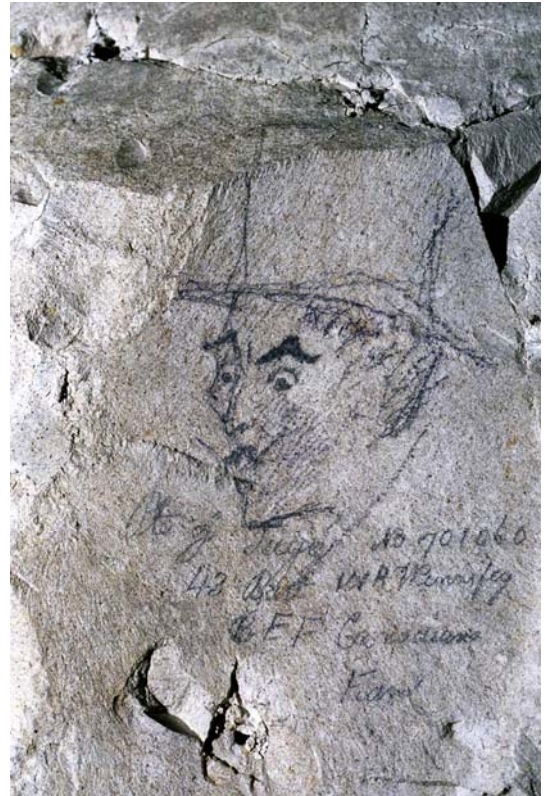 Pte J No 701060
43 Batt Winnipeg
BEF Canadians